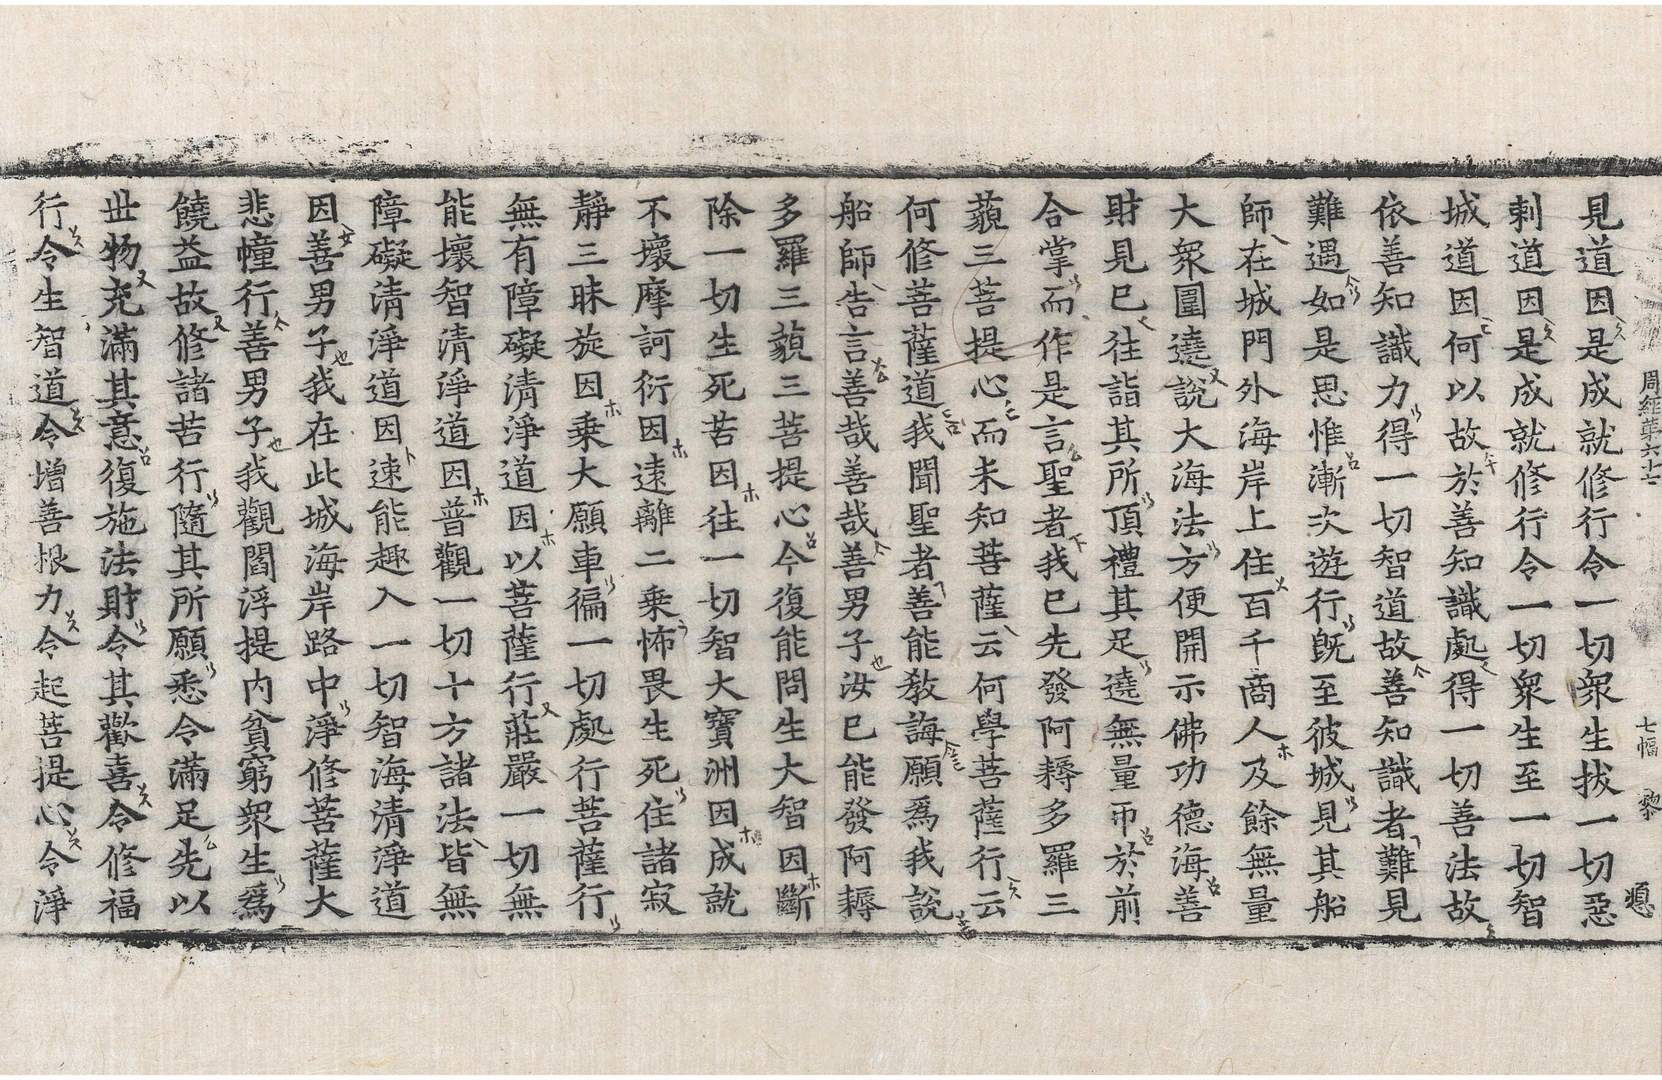 周經第六十七 七幅 黎
見道因是成就修行令一切衆生拔一切惡
剌道因是成就修行令一切衆生至一切智
城道因何以故於善知識處得一切善法故
依善知識力得一切智道故善知識者難見
難遇如是思惟漸次遊行旣至彼城見其船
師在城門外海岸上住百千商人及餘無量
大衆圍遶說大海法方便開示佛功德海善
財見已往詣其所頂禮其足遶無量帀於前
合掌而作是言聖者我已先發阿耨多羅三
藐三菩提心而未知菩薩云何學菩薩行云
何修菩薩道我聞聖者善能教誨願爲我說
船師告言善哉善哉善男子汝已能發阿耨
多羅三藐三菩提心今復能問生大智因斷
除一切生死苦因往一切智大寶洲因成就
不壞摩訶衍因遠離二乘怖畏生死住諸寂
靜三昧旋因乘大願車徧一切處行菩薩行
無有障礙清淨道因以菩薩行莊嚴一切無
能壞智清淨道因普觀一切十方諸法皆無
障礙清淨道因速能趣入一切智海清淨道
因善男子我在此城海岸路中淨修菩薩大
悲幢行善男子我觀閻浮提內貧窮衆生爲
饒益故修諸苦行隨其所願悉令滿足先以
世物充滿其意復施法財令其歡喜令修福
行令生智道令增善根力令起菩提心令淨